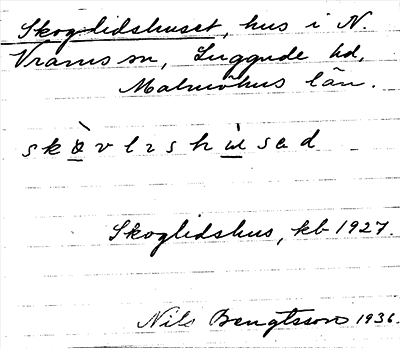 Skoglidshuset, hus i N.
Vrams sn, Luggude hd,
Malmöhus län.
skòvlıshùsəd
Skoglidshus, kb 1927.
Nils Bengtsson 1936.